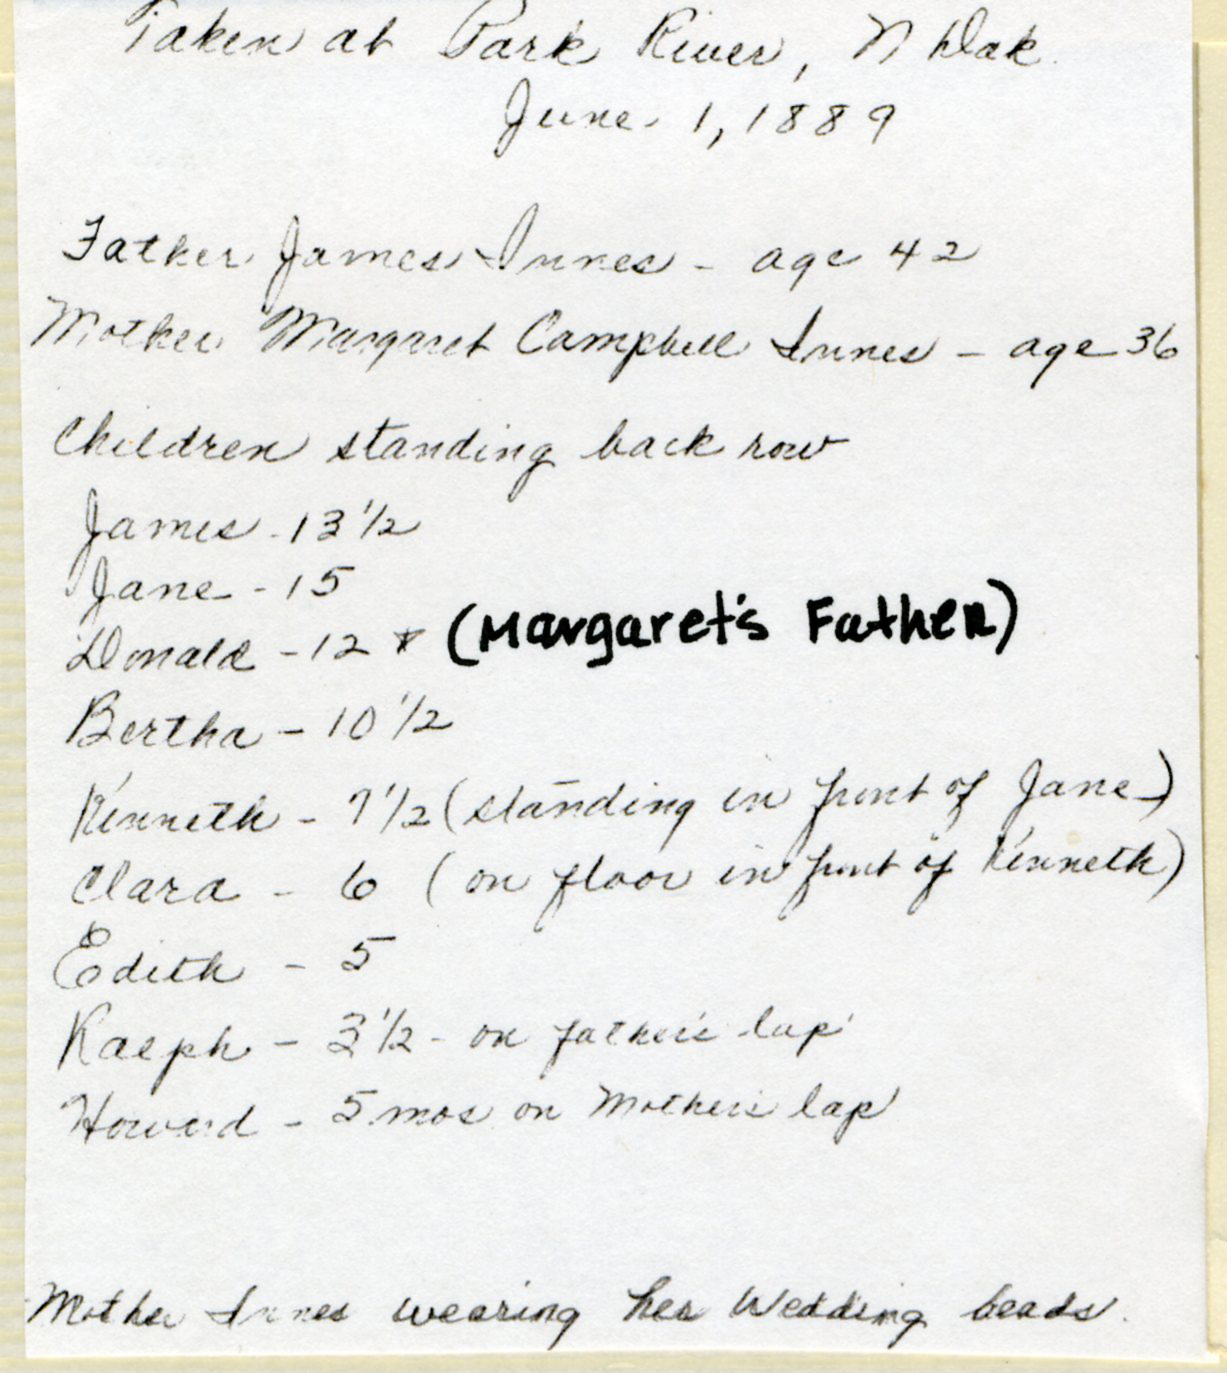 Taken at Park River, N Dak.
June 1, 1889
Father James Innes - age 42
Mother Margaret Campbell Innes - age 36
Children standing back row
James - 13 1/2
Jane - 15
Donald - 12 * (Margaret's Father)
Bertha - 10 1/2
Kenneth - 7 1/2 (standing in front of Jane)
Clara - 6 (on floor in front of Kenneth)
Edith - 5
Ralph - 3 1/2 - on father's lap
Howard - 5 mos on Mother's lap
Mother Innes wearing her Wedding beads.